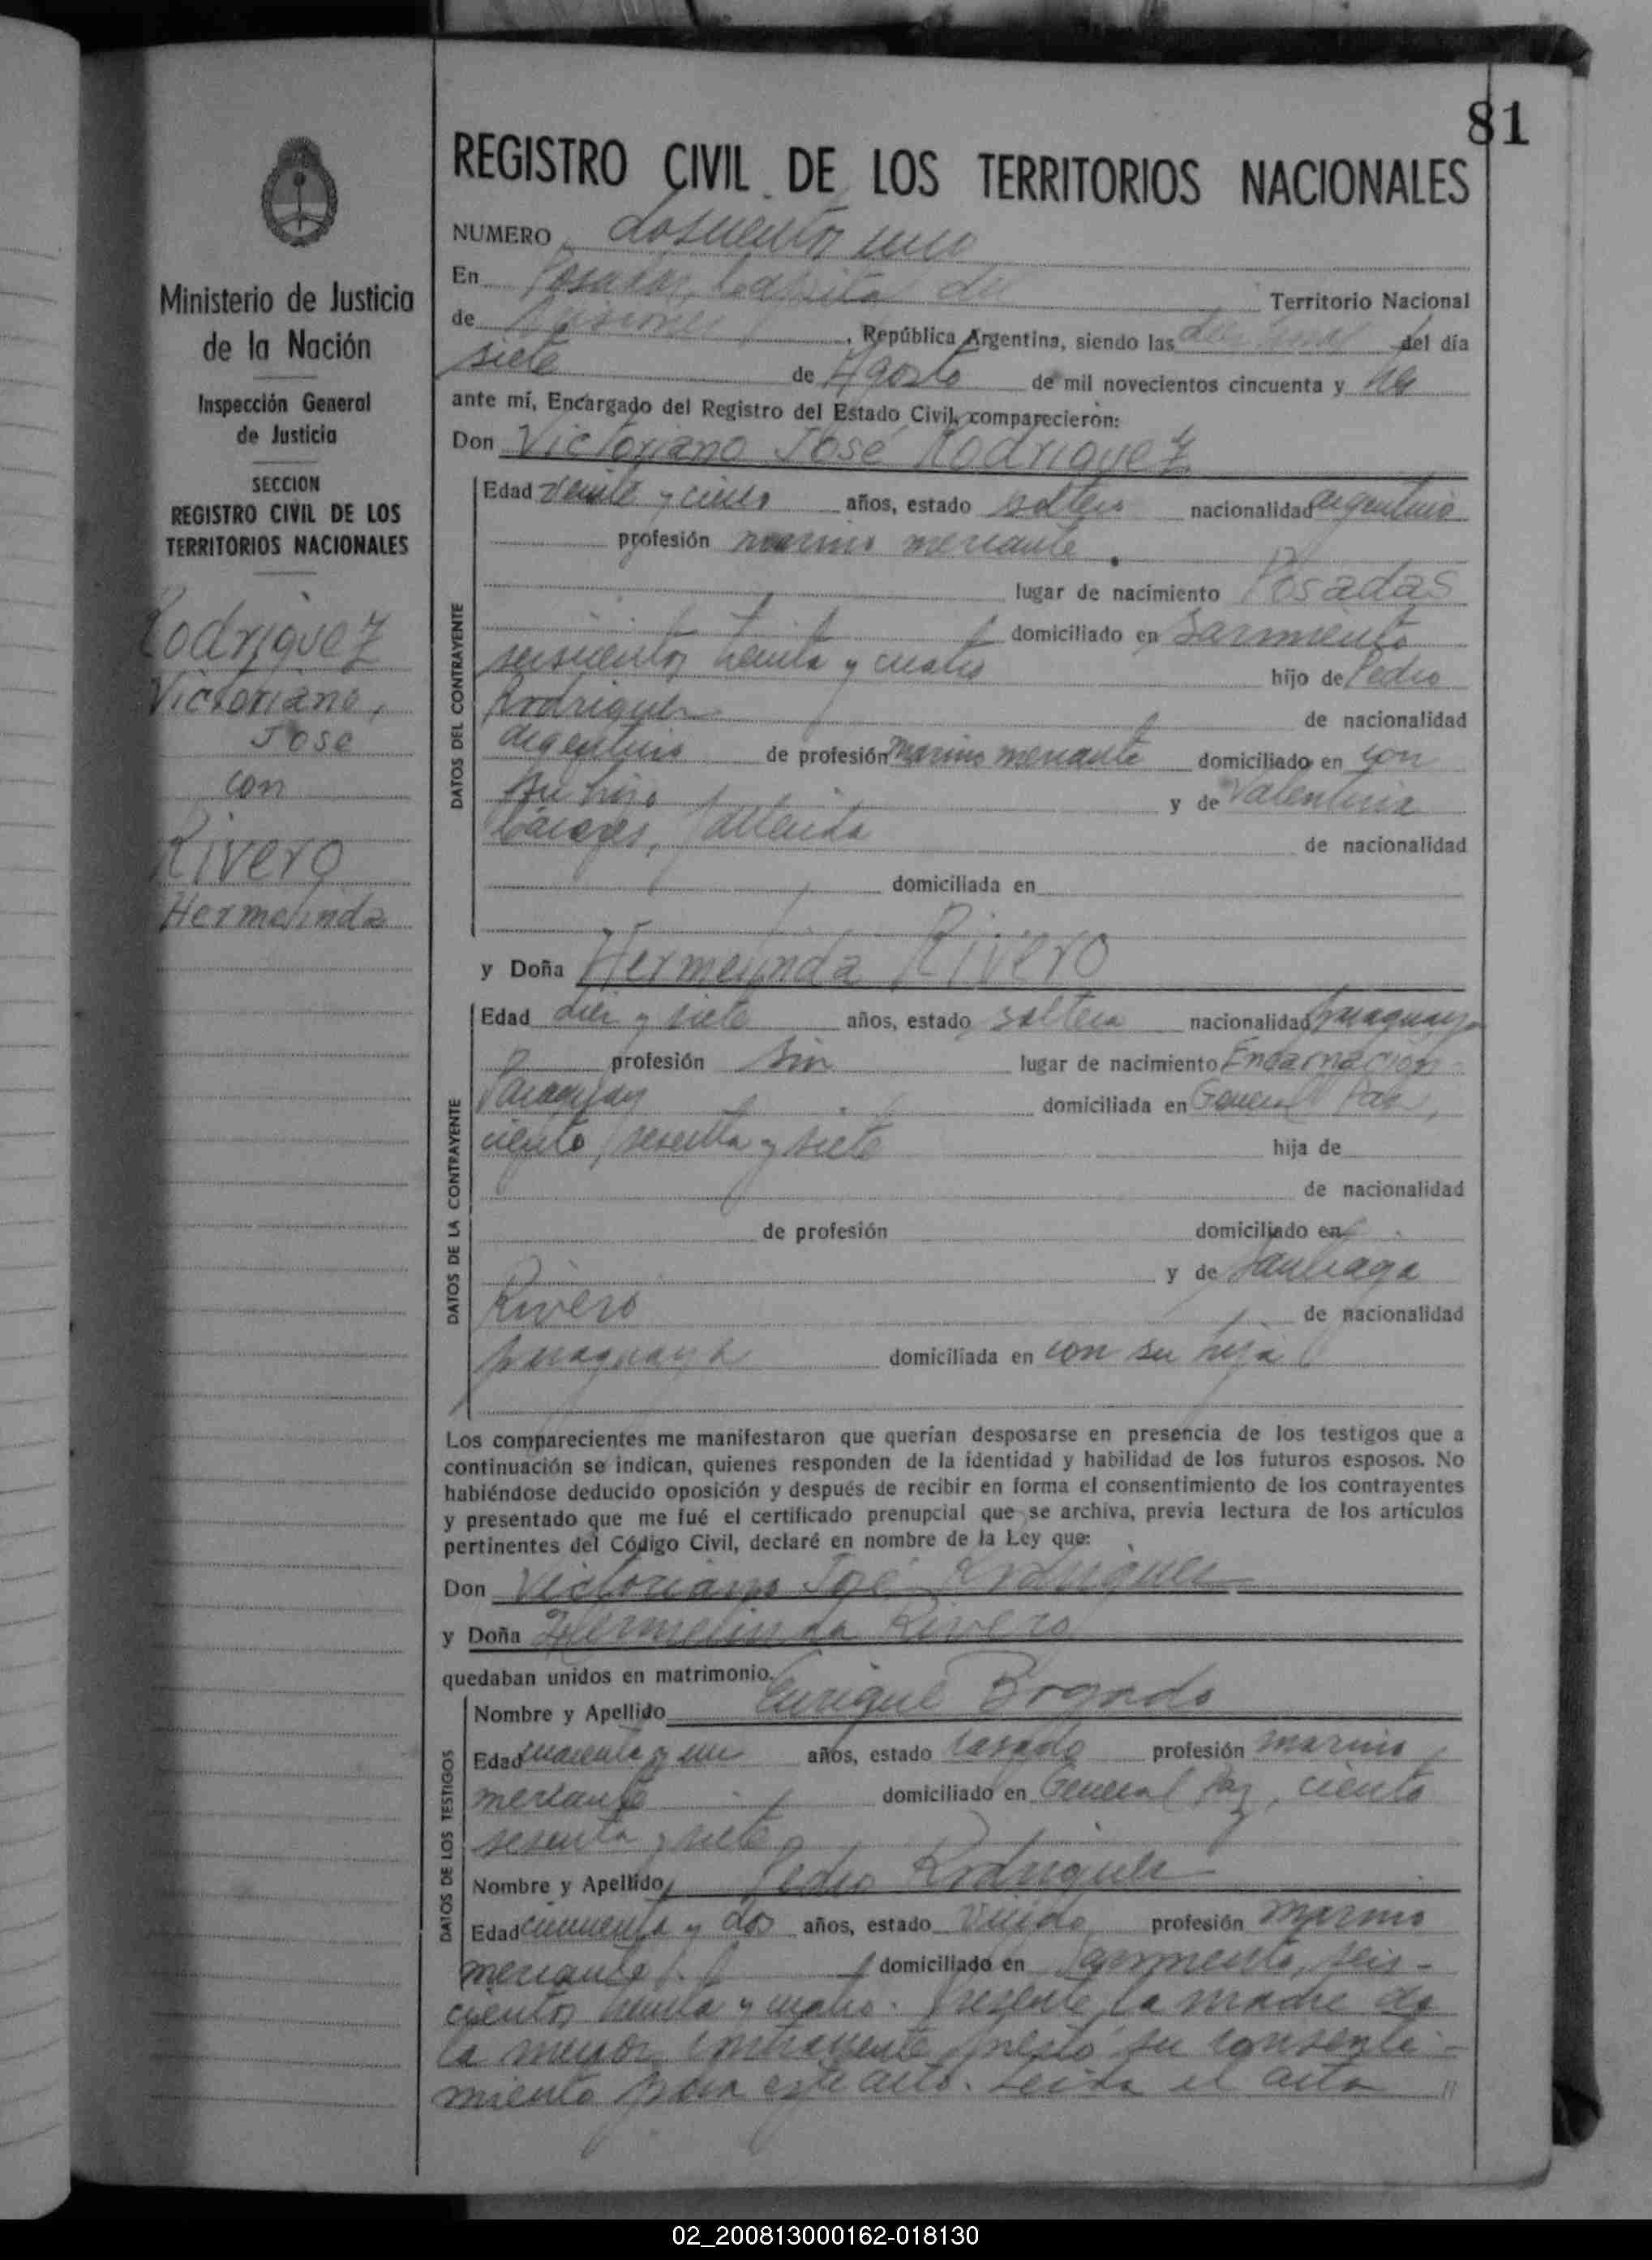 81
REGISTRO CIVIL DE LOS TERRITORIOS NACIONALES
Ministerio de Justicia
de la Nación
Inspección General
de Justicia
SECCION
REGISTRO CIVIL DE LOS
TERRITORIOS NACIONALES
Rodriguez
Victoriano,
Jose
con
Rivero
Hermelinda
NUMERO doscientos uno
En Posadas, Capital del Territorio Nacional
de Misiones, República Argentina, siendo las del día
siete de Agosto de mil novecientos cincuenta y
ante mí, Encargado del Registro del Estado Civil, comparecieron:
Don Victoriano José Rodriguez
DATOS DEL CONTRAYENTE
Edad veinte y cinco años, estado soltero nacionalidad argentino
profesión marino mercante
lugar de nacimiento Posadas
domiciliado en Sarmiento
seiscientos treinta y cuatro hijo de Pedro
Rodriguez de nacionalidad
argentino de profesión marino mercante domiciliado en con
su hijo y de Valentina
fallecida de nacionalidad
domiciliada en
y Doña Hermelinda Rivero
DATOS DE LA CONTRAYENTE
Edad diez y siete años, estado soltera nacionalidad paraguaya
profesión sin lugar de nacimiento Encarnación
Paraguay domiciliada en General Paz,
ciento sesenta y siete hija de
de nacionalidad
de profesión domiciliado en
y de Santiaga
Rivero de nacionalidad
paraguaya domiciliada en con su hija
Los comparecientes me manifestaron que querían desposarse en presencia de los testigos que a
continuación se indican, quienes responden de la identidad y habilidad de los futuros esposos. No
habiéndose deducido oposición y después de recibir en forma el consentimiento de los contrayentes
y presentado que me fué el certificado prenupcial que se archiva, previa lectura de los artículos
pertinentes del Código Civil, declaré en nombre de la Ley que:
Don Victoriano José Rodriguez
y Doña Hermelinda Rivero
quedaban unidos en matrimonio.
DATOS DE LOS TESTIGOS
Nombre y Apellido Enrique Bogado
Edad cuarenta y un años, estado casado profesión marino
mercante domiciliado en General Paz, ciento
sesenta y siete
Nombre y Apellido Pedro Rodriguez
Edad cincuenta y dos años, estado viudo profesión marino
mercante domiciliado en Sarmiento, seis-
cientos treinta y cuatro. Presente la madre de
la menor contrayente prestó su consenti-
miento para este acto. Leida el acta "
02_200813000162-018130